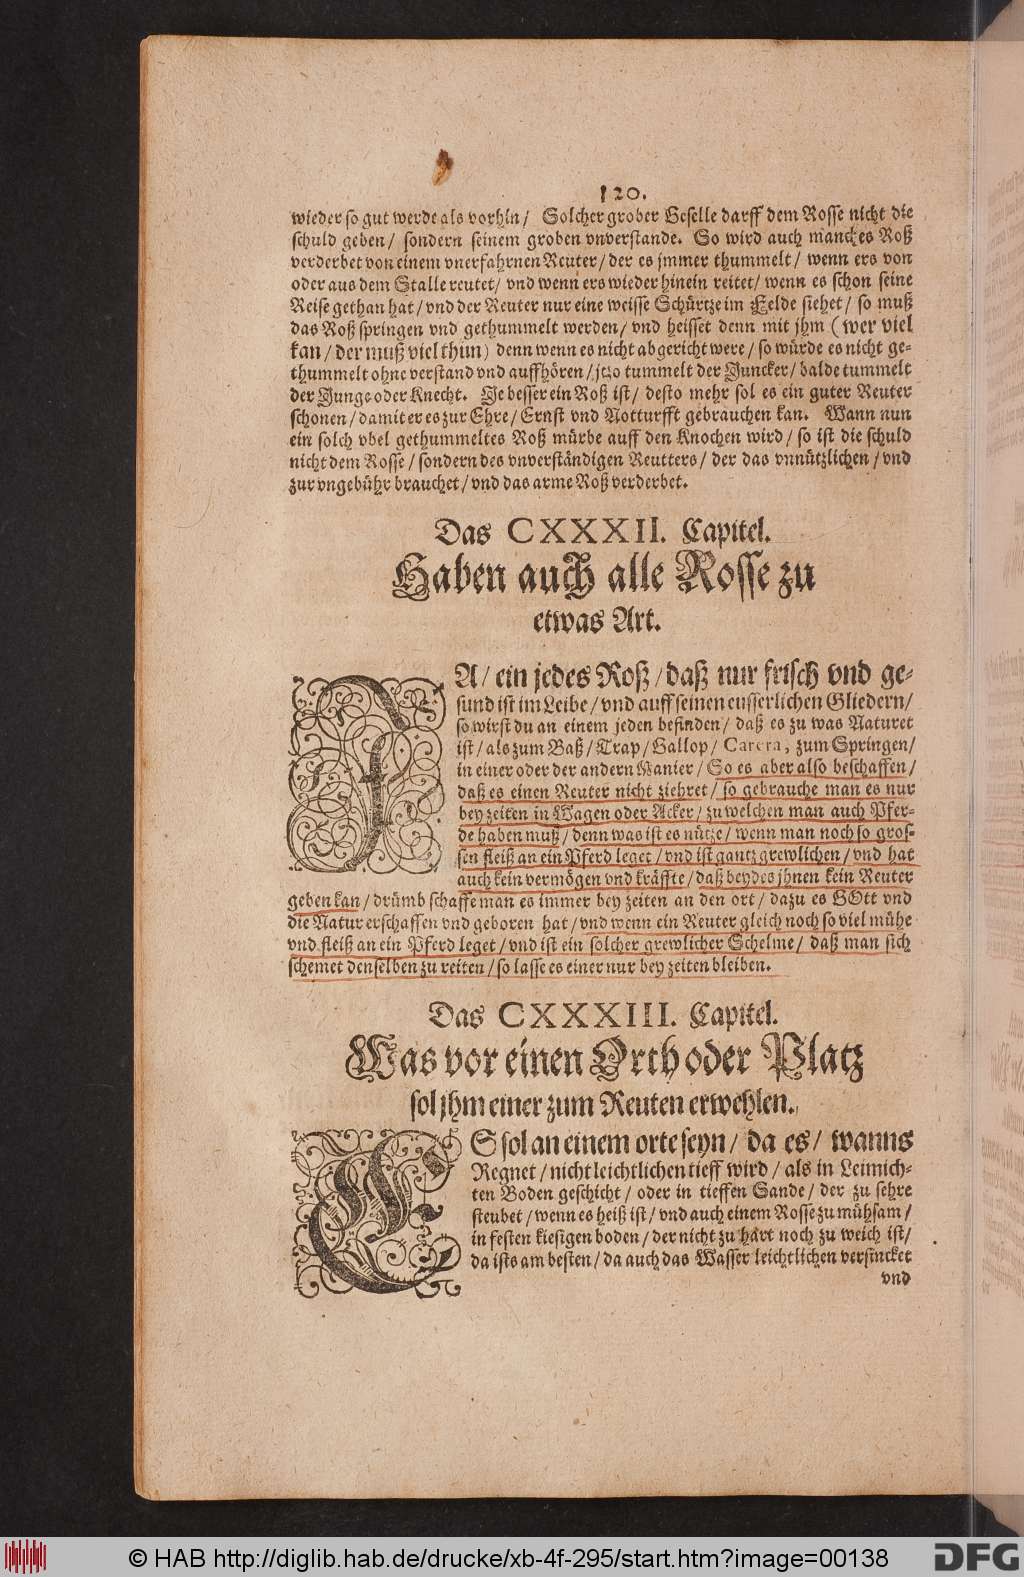 120.
wieder so gut werde als vorhin / Solcher grober Geselle darff dem Rosse nicht die
schuld geben / sondern seinem groben vnverstande. So wird auch manches Roß
verderbet von einem vnerfahrnen Reuter / der es jmmer thummelt / wenn ers von
oder aus dem Stalle reutet / vnd wenn ers wieder hinein reitet / wenn es schon seine
Reise gethan hat / vnd der Reuter nur eine weisse Schürtze im Felde siehet / so muß
das Roß springen vnd gethummelt werden / vnd heisset denn mit jhm (wer viel
kan / der muß viel thun) denn wenn es nicht abgericht were / so würde es nicht ge-
thummelt ohne verstand vnd auffhören / jtzo tummelt der Juncker / balde tummelt
der Junge oder Knecht. Je besser ein Roß ist / desto mehr sol es ein guter Reuter
schonen / damit er es zur Ehre / Ernst vnd Notturfft gebrauchen kan. Wann nun
ein solch vbel gethummeltes Roß mürbe auff den Knochen wird / so ist die schuld
nicht dem Rosse / sondern des vnverständigen Reutters / der das vnnützlichen / vnd
zur vngebühr brauchet / vnd das arme Roß verderbet.
Das CXXXII. Capitel.
Haben auch alle Rosse zu
etwas Art.
JA / ein jedes Roß / daß nur frisch vnd ge-
sund ist im Leibe / vnd auff seinen eusserlichen Gliedern /
so wirst du an einem jeden befinden / daß es zu was Naturet
ist / als zum Paß / Trap / Gallop / Carera, zum Springen /
in einer oder der andern Manier / So es aber also beschaffen /
daß es einen Reuter nicht ziehret / so gebrauche man es nur
bey zeiten in Wagen oder Acker / zu welchen man auch Pfer-
de haben muß / denn was ist es nütze / wenn man noch so gros-
sen fleiß an ein Pferd leget / vnd ist gantz grewlichen / vnd hat
auch kein vermögen vnd kräffte / daß beydes jhnen kein Reuter
geben kan / drümb schaffe man es immer bey zeiten an den ort / dazu es GOtt vnd
die Natur erschaffen vnd geboren hat / vnd wenn ein Reuter gleich noch so viel mühe
vnd fleiß an ein Pferd leget / vnd ist ein solcher grewlicher Schelme / daß man sich
schemet denselben zu reiten / so lasse es einer nur bey zeiten bleiben.
Das CXXXIII. Capitel.
Was vor einen Orth oder Platz
sol jhm einer zum Reuten erwehlen.
ES sol an einem orte seyn / da es / wanns
Regnet / nicht leichtlichen tieff wird / als in Leimich-
ten Boden geschicht / oder in tieffen Sande / der zu sehre
steubet / wenn es heiß ist / vnd auch einem Rosse zu mühsam /
in festen kiesigen boden / der nicht zu hart noch zu weich ist /
da ists am besten / da auch das Wasser leichtlichen versincket
vnd
© HAB http://diglib.hab.de/drucke/xb-4f-295/start.htm?image=00138
DFG